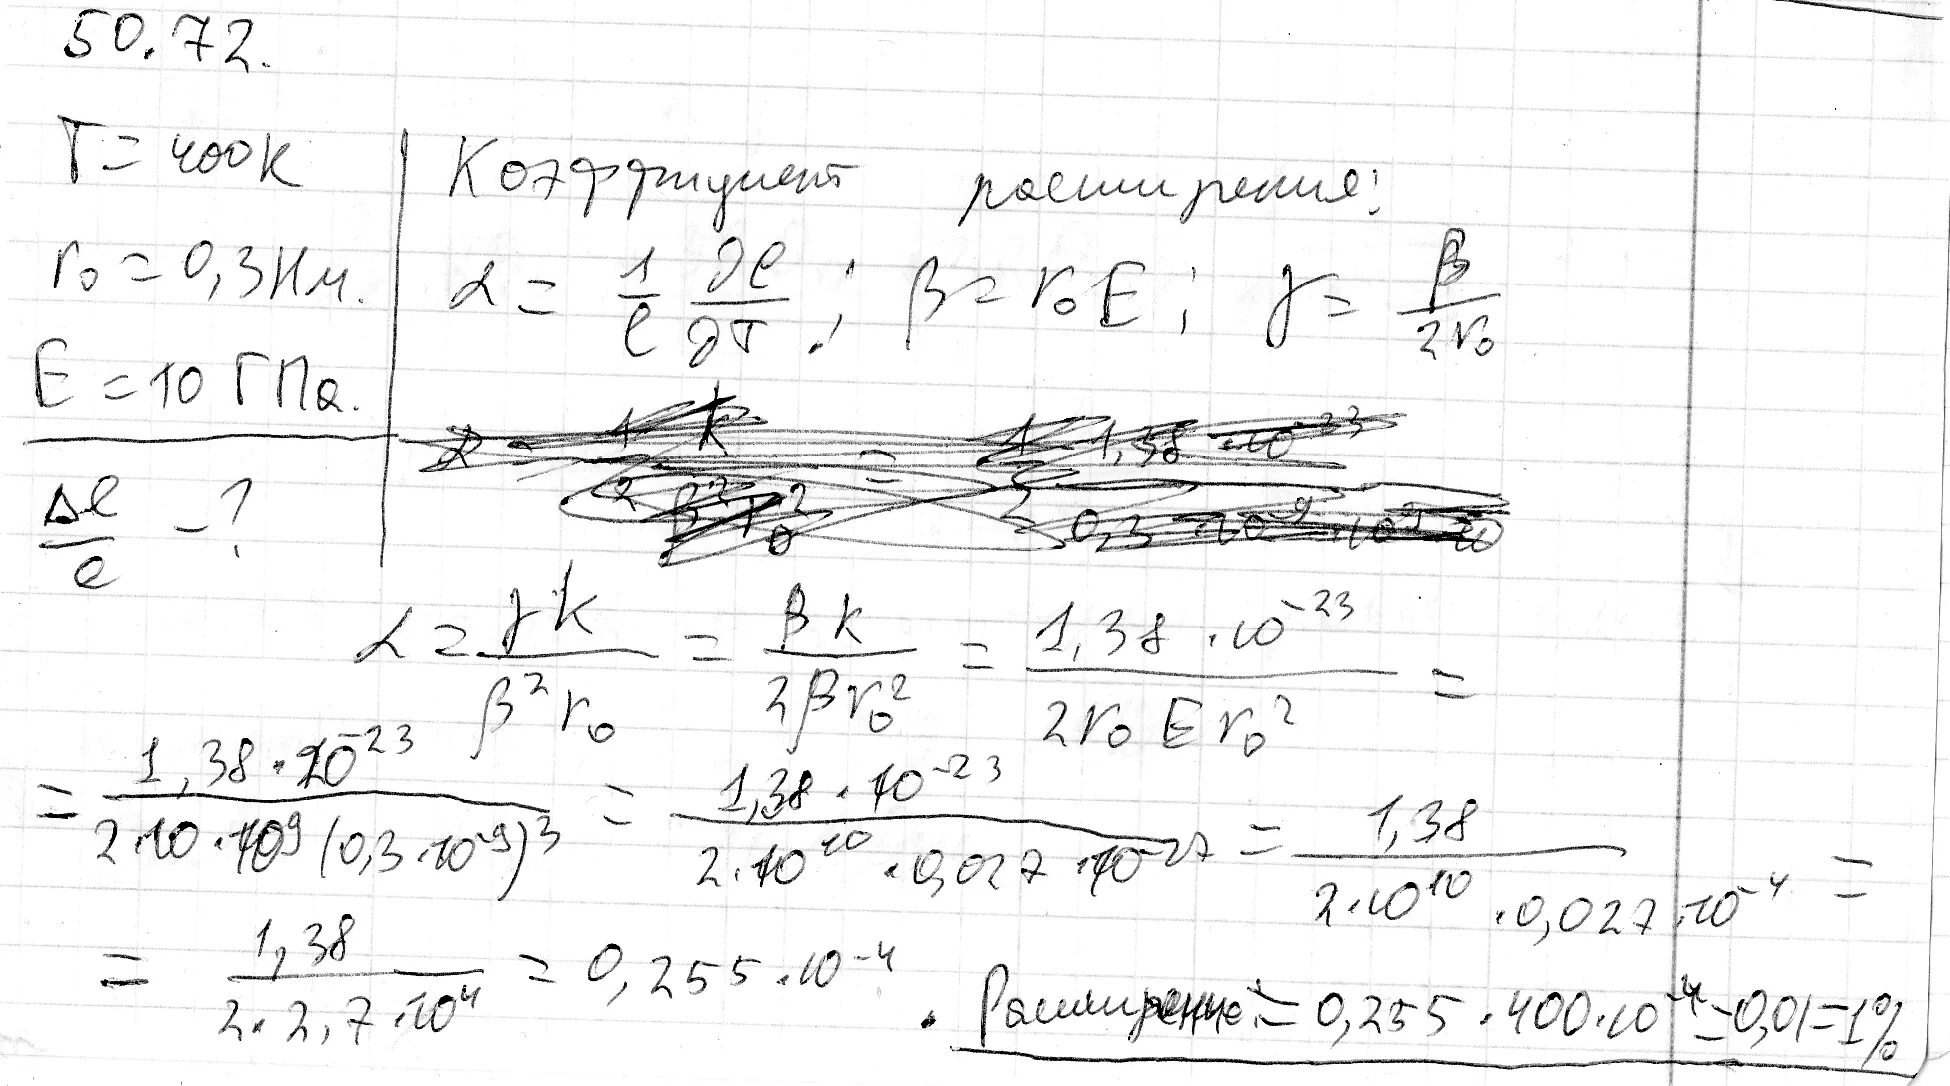 50.72.
T = 400K
r₀ = 0,3 Нм.
E = 10 ГПа.
Δl/l - ?
Коэффициент расширения:
α = 1/l ∂l/∂T ; β = r₀E ; γ = β/2r₀
α = γk/β²r₀ = βk/2βr₀² = 1,38·10⁻²³/2r₀Er₀² =
= 1,38·10⁻²³/2·10·10⁹(0,3·10⁻⁹)³ = 1,38·10⁻²³/2·10¹⁰·0,027·10⁻²⁷ = 1,38/2·10¹⁰·0,027·10⁻⁴ =
= 1,38/2·2,7·10⁴ = 0,255·10⁻⁴
. Расширение = 0,255·400·10⁻⁴ = 0,01 = 1%